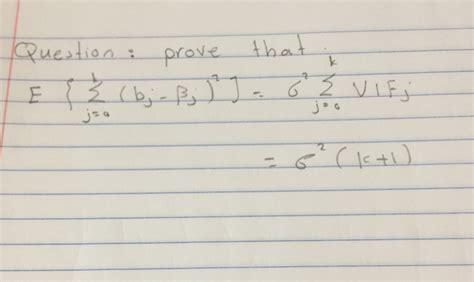 Question: prove that
E { Σ_{j=0}^{k} (b_j - β_j)² ] = σ² Σ_{j=0}^{k} VIF_j
= σ² (k+1)